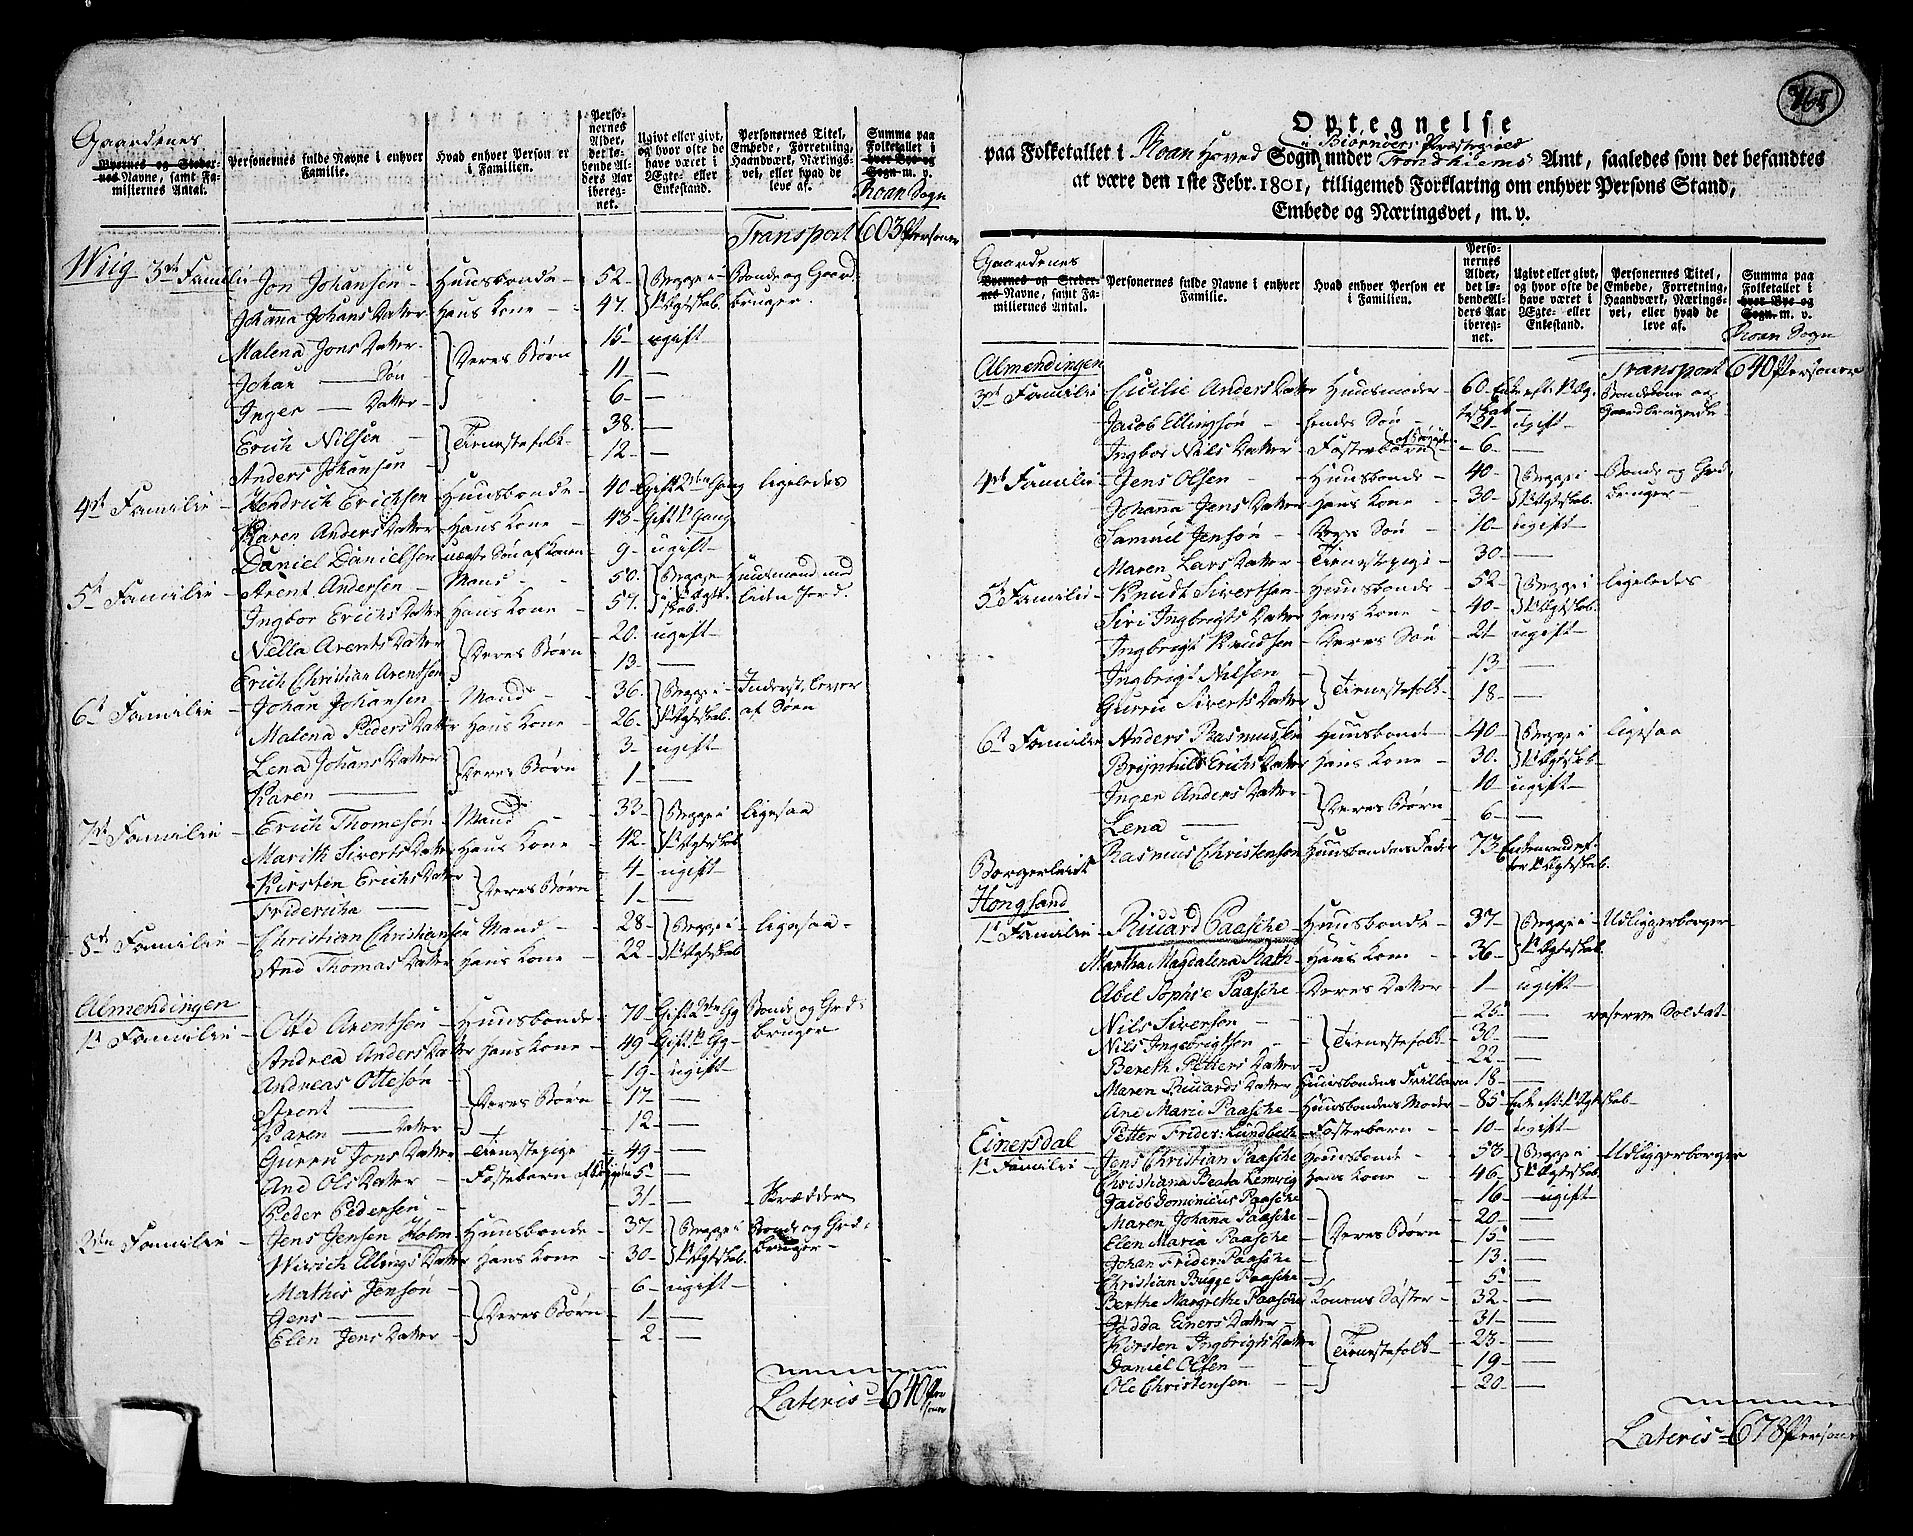 Gaardenes
Byernes og Stedernes Navne, samt Familiernes Antal.
Personernes fulde Navne i enhver Familie.
Hvad enhver Person er i Familien.
Personernes Alder, det løbende Alders Aar iberegnet.
Ugivt eller givt, og hvor ofte de have været i Ægte- eller Enkestand.
Personernes Titel, Embede, Forretning, Haandværk, Næringsvei, eller hvad de leve af.
Summa paa Folketallet i hver Bye og Sogn m. v.
Roan Sogn
Transport 603 Personer
Wiig 3de Familie Jon Johansen - Huusbonde - 52 - Begge i Bonde og Gaard
Johanna Johans Datter Hans Kone - 47. 1t Ægteskab. bruger.
Malena Jons Datter - Deres Børn 15 ugift
Johan — Søn 11 —
Inger — Datter - 6 —
Erich Nilsen - Tienestefolk - 38. —
Anders Johansen - 12 —
4de Familie - Hendrich Erichsen - Huusbonde - 40 - Gift 2den Gang ligeledes
Karen Anders Datter - Hans Kone - 43 - Gift 1t Gang
Daniel Danielsen uægte Søn af Konen - 9 - ugift
5t Familie - Arent Andersen - Mand - 50. Begge Huusmand med
Ingbor Erichs Datter Hans Kone - 57. i 1t Ægteskab. liden Jord.
Nella Arents Datter Deres Børn - 20. ugift
Erich Christian Arentsen 13 - —
6t Familie - Johan Johansen - Mand - 36. Begge i Inderst, lever
Malena Peders Datter Hans Kone - 26. 1t Ægteskab. af Søen
Lena Johans Datter Deres Børn 3 - ugift
Karen — 1 - —
7de Familie - Erich Thomesøn - Mand - 33 - Begge i ligesaa
Marith Siverts Datter Hans Kone - 42. 1t Ægteskab
Kirsten Erichs Datter - Deres Børn 4 - ugift
Fridericha — 1 - —
8de Familie - Christian Christiansen Mand - 28 - Begge i ligesaa -
And Thomas Datter Hans Kone - 22 - 1t Ægteskab
Almendingen
1t Familie - Otto Arentsen - Huusbonde - 70 - Gift 2den Gg Bonde og Grd:
Andrea Anders Datter Hans Kone - 49 - Gift 1t Gg - bruger
Andreas Ottesøn - Deres Børn 19 - ugift
Arent — 17 - —
Karen — Datter - 12 - —
Gurru Jons Datter - Tienestepige - 49 - —
And Ols Datter - Fosterbarn af 5 - —
Peder Pedersen - 31 - — Skrædder
2den Familie - Jens Jensen Holm - Huusbonde - 37 - Begge i Bonde og Grd:
Wirich Ellings Datter Hans Kone - 30 - 1t Ægteskab. bruger -
Mathis Jensøn - Deres Børn 6 - ugift
Jens — 1 - —
Elen Jens Datter - 2 - —
Lateris 640 Personer
765
Optegnelse
paa Folketallet i Roan Hoved Sogn i Biørnøers Præstegield under Trondhiems Amt, saaledes som det befandtes
at være den 1ste Febr. 1801, tilligemed Forklaring om enhver Persons Stand,
Embede og Næringsvei, m. v.
Gaardenes
Byernes og Stedernes Navne, samt Familiernes Antal.
Personernes fulde Navne i enhver Familie.
Hvad enhver Person er i Familien.
Personernes Alder, det løbende Alders Aar iberegnet.
Ugivt eller givt, og hvor ofte de have været i Ægte- eller Enkestand.
Personernes Titel, Embede, Forretning, Haandværk, Næringsvei, eller hvad de leve af.
Summa paa Folketallet i hver Bye og Sogn. m. v.
Roan Sogn
Transport 640 Personer
Almendingen
3de Familie Cicilie Anders Datter Huusmoder - 60 - Enke eft: 1t Æg- Bondekone og
Jacob Ellingsøn - Hendes Søn - 21 - ugift Gaardbrugende
Ingbor Nils Datter Fosterbarn - 6 - —
4de Familie - Jens Olsen - Huusbonde - 40 - Begge i Bonde og Grd
Johanna Jens Datter Hans Kone - 30 - 1t Ægteskab. bruger -
Samuel Jensøn - Søn - 10 - ugift
Maren Lars Datter - Tienestepige - 30 —
5t Familie - Knudt Sivertsen - Huusbonde - 52 - Begge i ligeledes
Siri Ingbrigts Datter Hans Kone - 40 - 1t Ægteskab.
Ingbrigt Knudsen - Deres Søn - 21 - ugift
Ingbrigt Nilsen - Tienestefolk - 13 - —
Gurru Siverts Datter 18 - —
6t Familie Anders Rasmussen Huusbonde - 40 - Begge i ligesaa
Brynhild Erichs Datter Hans Kone - 30. 1t Ægteskab -
Inger Anders Datter - Deres Børn 10 - ugift
Lena — 6 - —
Rasmus Christensen Huusbondens Fader 73 Enkemand efter 1t Ægteskab.
Borgerleiet
Hongsand
1t Familie - Richard Paasche - Huusbonde - 37 - Begge i Udliggerborger
Martha Magdalena Rath - Hans Kone - 36 - 1t Ægteskab.
Abel Sophie Paasche Deres Datter - 1 - ugift
Nils Siversen - Tienestefolk 25 - — reserve Soldat
Nils Ingebrigtsen - 30 - —
Bereth Petters Datter - 22 - —
Maren Richards Datter Huusbondens Frilbarn 18 - —
Ane Marie Paasche - Huusbondens Moder - 85 Enke eft: 1t Ægteskab -
Petter Frider: Lundbeth - Fosterbarn - 10 - ugift
Einersdal
1t Familie - Jens Christian Paasche Huusbonde - 53 - Begge i Udliggerborger
Christiana Beata Lemvig Hans Kone - 46 - 1t Ægteskab.
Jacob Dominicus Paasche Deres Børn 16 - ugift
Maren Johanna Paasche 20 - —
Elen Maria Paasche 15 - —
Johan Frider: Paasche 13. —
Christian Bugge Paasche 5 - —
Berthe Margrethe Paasche Konens Søster - 32 - —
Hedda Einers Datter - Tienestefolk - 31 - —
Kirsten Ingbrigts Datter 23 - —
Daniel Olsen - 19 - —
Ole Christensen - 20 - —
Lateris 678 Personer